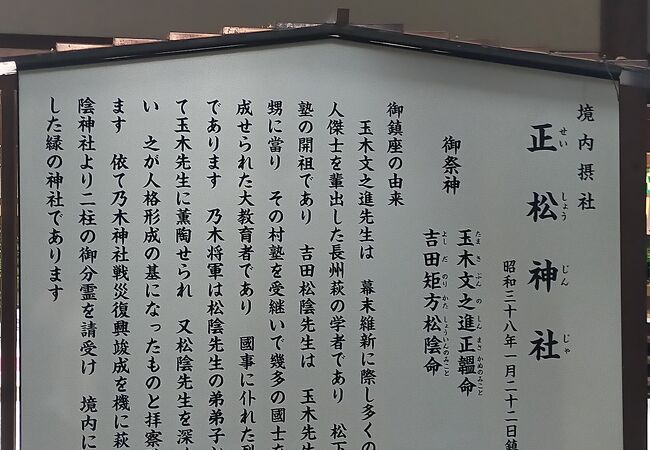 境内摂社
正松神社
せいしょうじんじゃ
昭和三十八年一月二十二日鎮
御祭神
玉木文之進正韞命
たまきぶんのしんまさかぬのみこと
吉田矩方松陰命
よしだのりかたしょういんのみこと
御鎮座の由来
玉木文之進先生は 幕末維新に際し多くの
人傑士を輩出した長州萩の学者であり 松下
塾の開祖であり 吉田松陰先生は 玉木先生
甥に當り その村塾を受継いで幾多の國士を
成せられた大教育者であり 國事に仆れた烈
であります 乃木将軍は松陰先生の弟弟子
て玉木先生に薫陶せられ 又松陰先生を深
い 之が人格形成の基になったものと拝察
ます 依て乃木神社戦災復興竣成を機に萩
陰神社より二柱の御分霊を請受け 境内に
した縁の神社であります